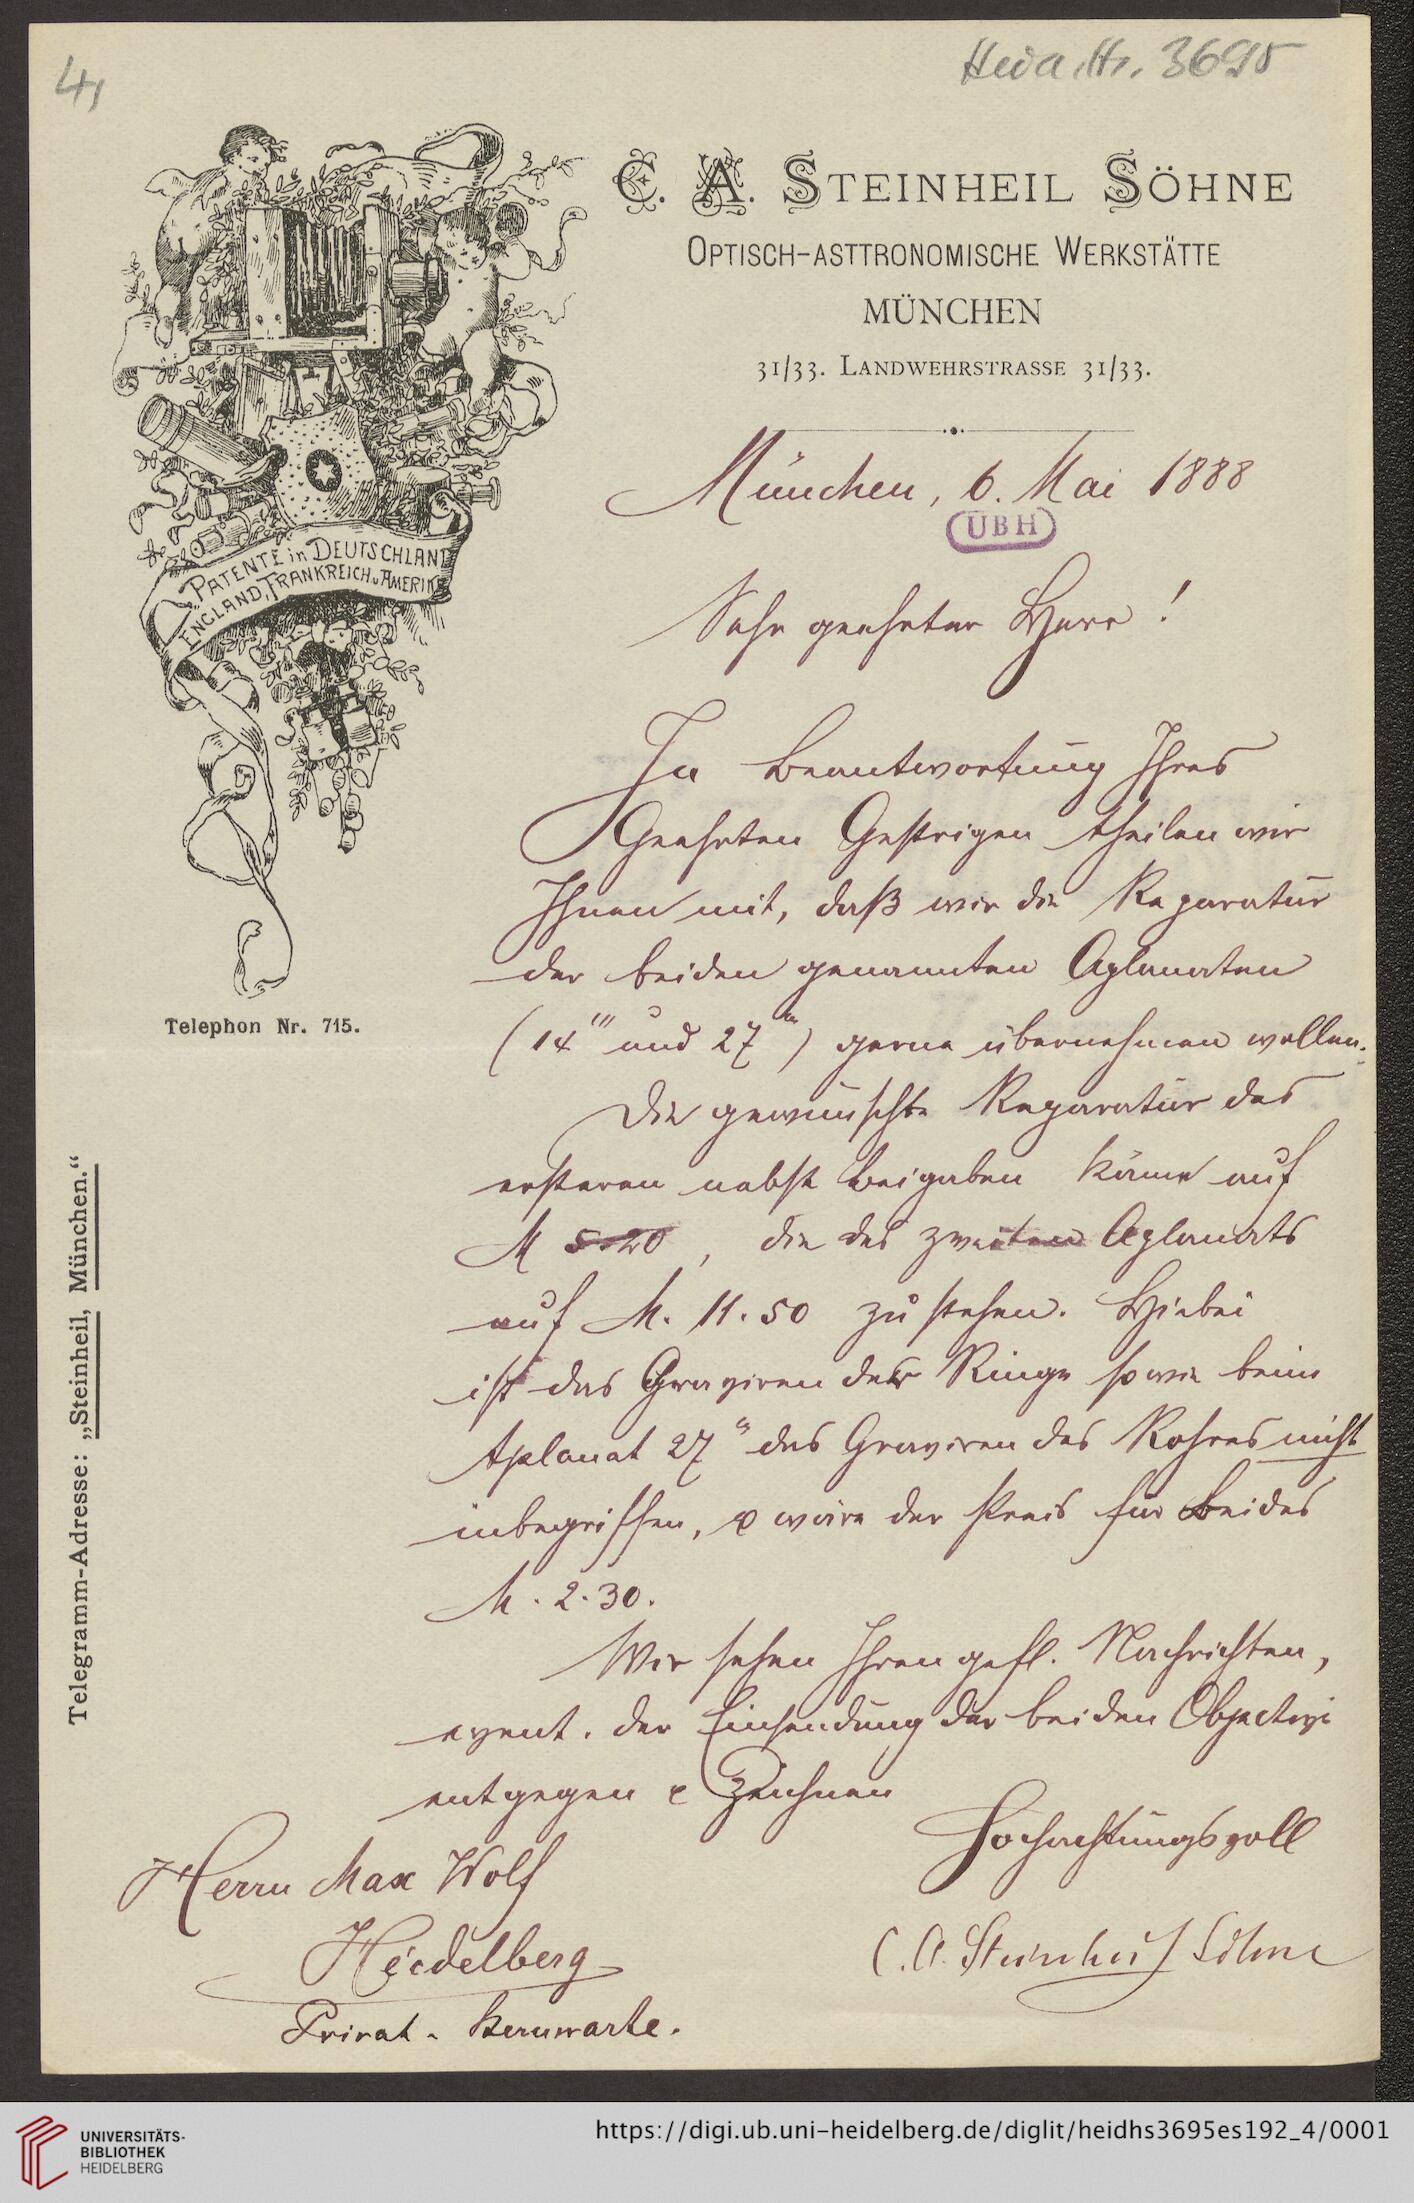 4,
Heid. Hs. 3695
C. A. STEINHEIL SÖHNE
OPTISCH-ASTTRONOMISCHE WERKSTÄTTE
MÜNCHEN
31/33. LANDWEHRSTRASSE 31/33.
München, 6. Mai 1888
UBH
PATENTE in DEUTSCHLAND
ENGLAND, FRANKREICH u. AMERIKA
Sehr geehrter Herr!
In Beantwortung Ihres
Geehrten Gestrigen theilen wir
Ihnen mit, daß wir die Reparatur
der beiden genannten Aplanaten
(14''' und 27''') gerne übernehmen wollen.
Telephon Nr. 715.
Die gewünschte Reparatur des
ersteren nebst Beigaben käme auf
M 5.20, die des zweiten Aplanats
auf M. 11.50 zu stehen. Hiebei
ist das Graviren der Ringe sowie beim
Aplanat 27''' das Graviren des Rohres nicht
inbegriffen, & wäre der Preis für Beides
M. 2.30.
Telegramm-Adresse: „Steinheil, München.“
Wir sehen Ihren gefl. Nachrichten,
event. der Einsendung der beiden Objective
entgegen & zeichnen
Hochachtungsvoll
C. A. Steinheil Söhne
Herrn Max Wolf
Heidelberg
Privat-Sternwarte.
UNIVERSITÄTS-
BIBLIOTHEK
HEIDELBERG
https://digi.ub.uni-heidelberg.de/diglit/heidhs3695es192_4/0001